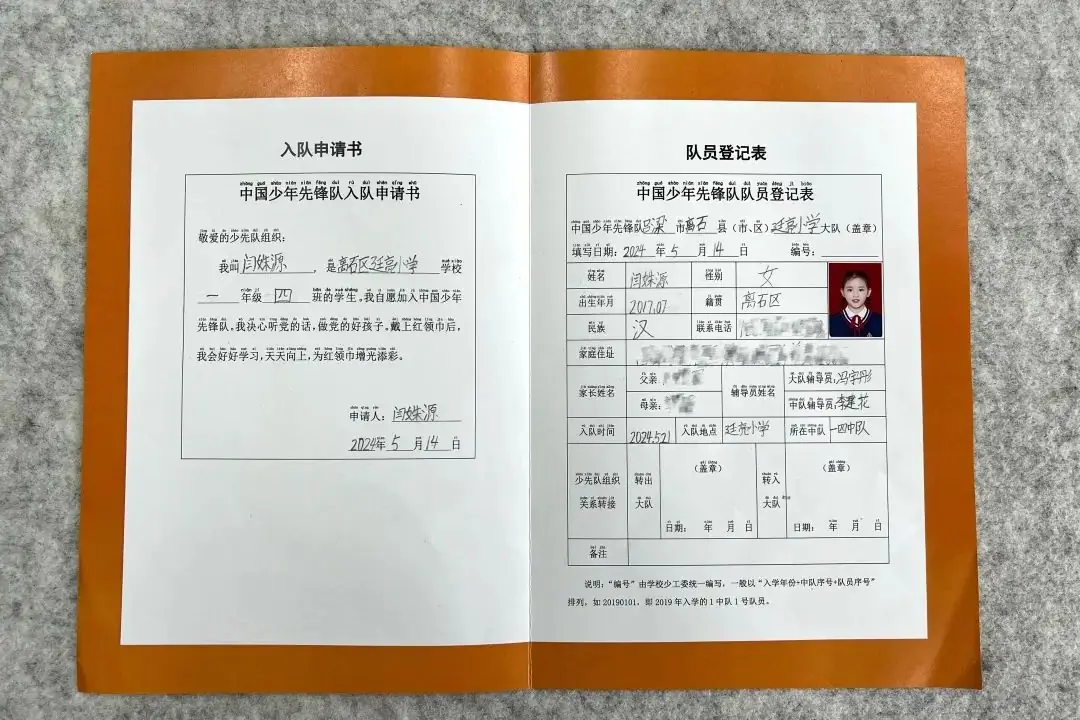 入队申请书
中国少年先锋队入队申请书
敬爱的少先队组织：
我叫闫姝源，是离石区廷亮小学学校
一年级四班的学生，我自愿加入中国少年
先锋队。我决心听党的话，做党的好孩子。戴上红领巾后，
我会好好学习，天天向上，为红领巾增光添彩。
申请人：闫姝源
2024年5月14日
队员登记表
中国少年先锋队队员登记表
中国少年先锋队吕梁市离石县（市、区）廷亮小学大队（盖章）
填写日期：2024年5月14日 编号：
姓名 闫姝源 性别 女
出生年月 2017.07 籍贯 离石区
民族 汉 联系电话
家庭住址
家长姓名 父亲： 辅导员姓名 大队辅导员：冯宇彤
母亲： 中队辅导员：李建花
入队时间 2024.5.21 入队地点 廷亮小学 所在中队 一四中队
少先队组织关系转接 转出大队 （盖章） 日期： 年 月 日 转入大队 （盖章） 日期： 年 月 日
备注
说明：“编号”由学校少工委统一编写，一般以“入学年份+中队序号+队员序号”
排列，如 20190101，即 2019 年入学的 1 中队 1 号队员。